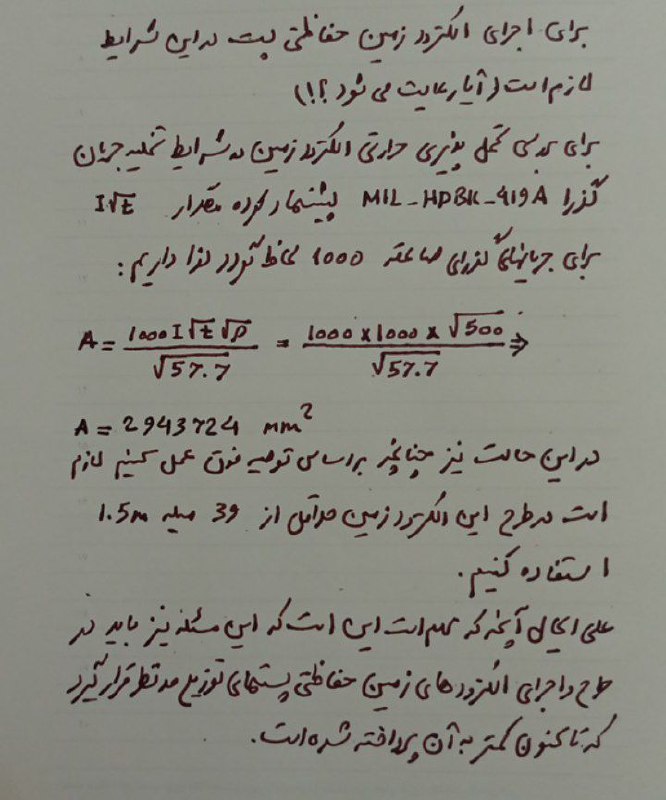 برای اجرای الکترود زمین حفاظتی پست در این شرایط
لازم است (آیا رعایت می شود ؟!)
برای بررسی تحمل پذیری حرارتی الکترود زمین در شرایط تخلیه جریان
گذرا MIL-HDBK-419A پیشنهاد کرده مقدار I√t
برای جریانهای گذرای صاعقه 1000 لحاظ گردد لذا داریم:
A = 1000I√t√ρ / √57.7 = 1000 x 1000 x √500 / √57.7 ⇒
A = 2943724 mm²
در این حالت نیز چنانچه براساس توصیه فوق عمل کنیم لازم
است در طرح این الکترود زمین حداقل از 39 میله 1.5m
استفاده کنیم.
علی ایحال آنچه که مهم است این است که این مسئله نیز باید در
طرح و اجرای الکترودهای زمین حفاظتی پستهای توزیع مدنظر قرار گیرد
که تاکنون کمتر به آن پرداخته شده است.